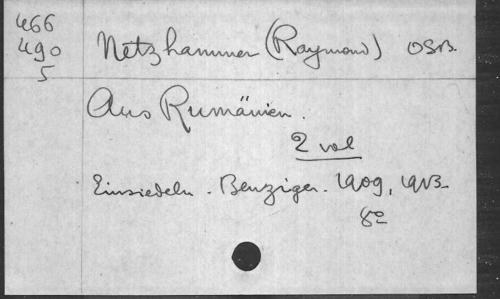 466
490
5
Netzhammer (Raymond) OSB.
Aus Rumänien.
2 vol
Einsiedeln. Benziger. 1909, 1913
8º